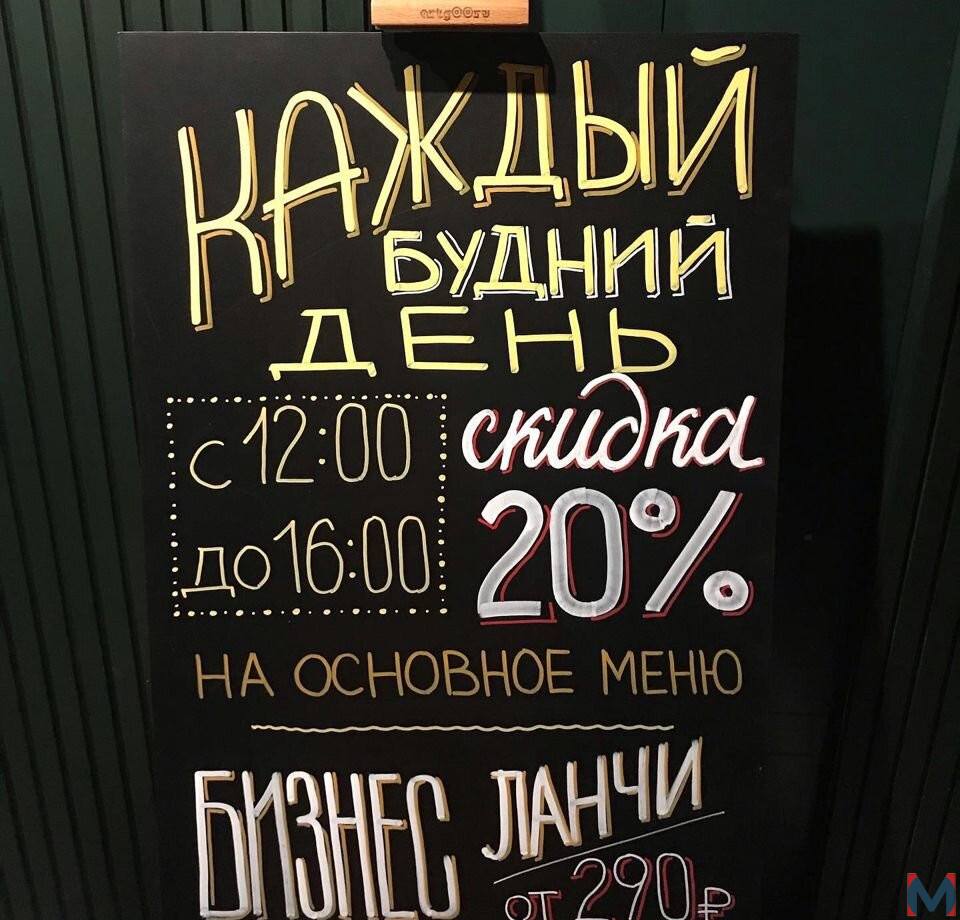 КАЖДЫЙ
БУДНИЙ
ДЕНЬ
с 12:00
до 16:00
скидка
20%
НА ОСНОВНОЕ МЕНЮ
БИЗНЕС ЛАНЧИ
от 290₽
M